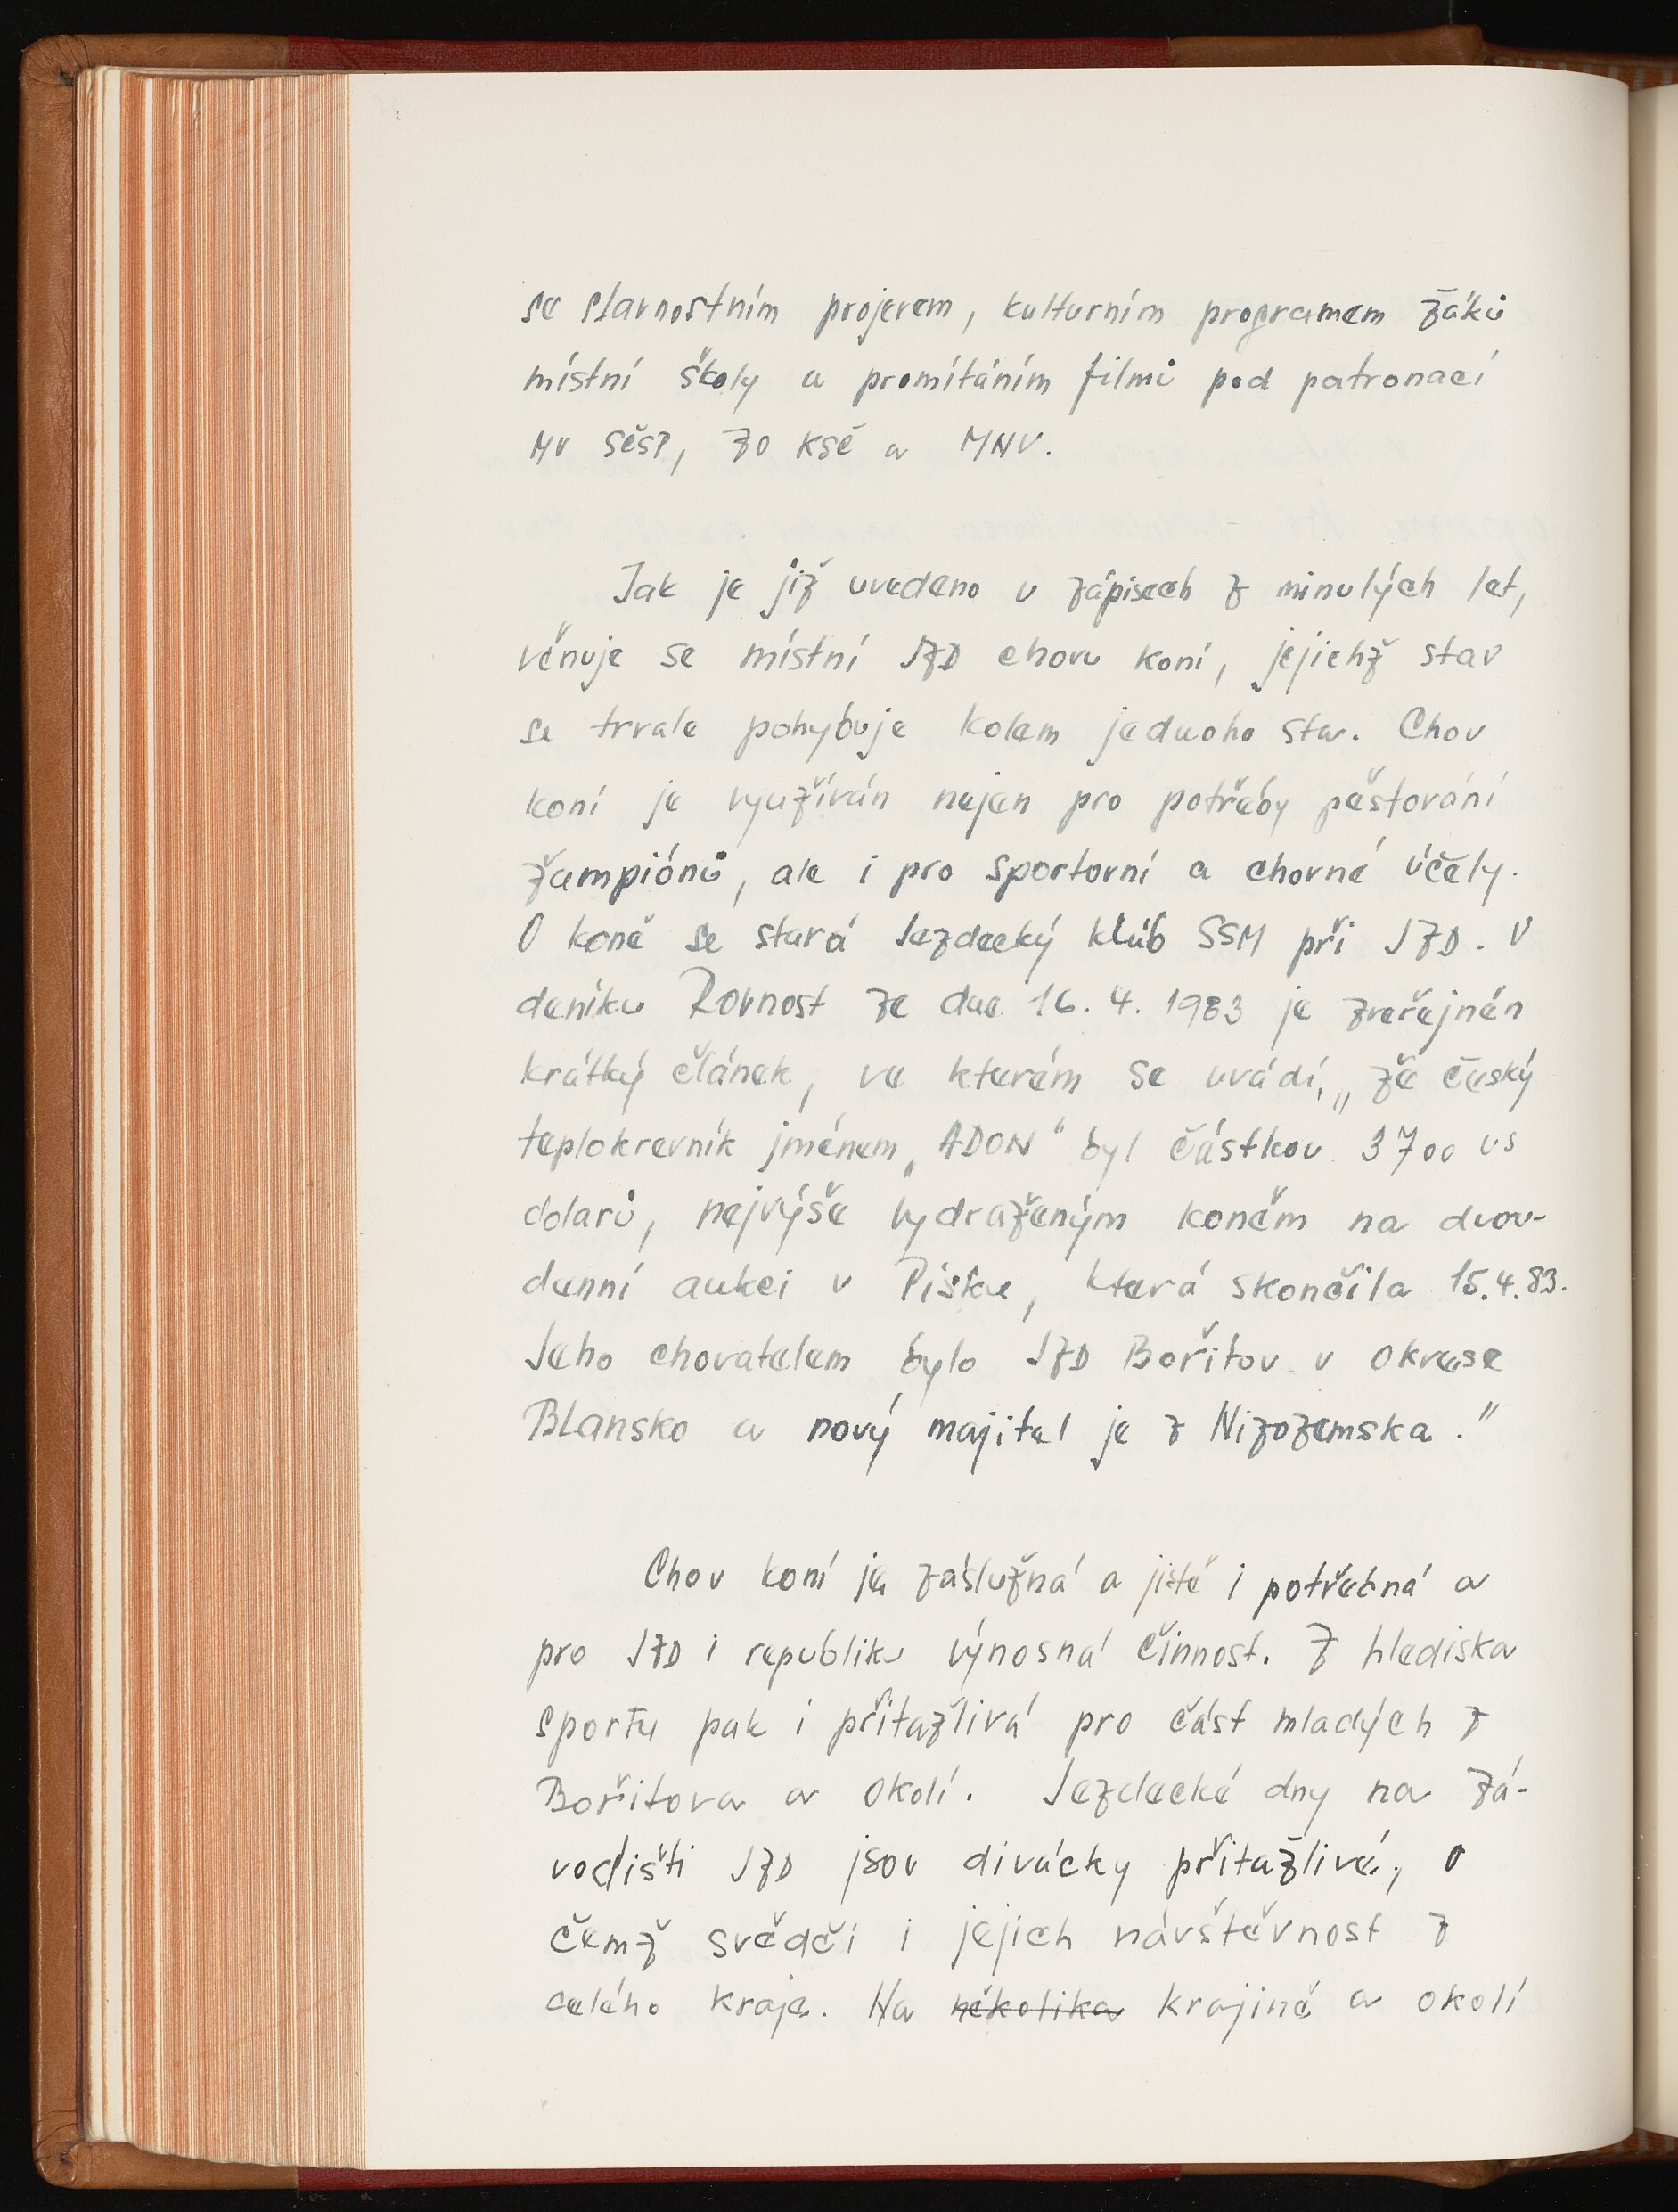 se slavnostním projevem, kulturním programem žáků
místní školy a promítáním filmů pod patronací
MV SČSP, ZO KSČ a MNV.
Jak je již uvedeno v zápisech z minulých let,
věnuje se místní JZD chovu koní, jejichž stav
se trvale pohybuje kolem jednoho sta. Chov
koní je využíván nejen pro potřeby pěstování
žampiónů, ale i pro sportovní a chovné účely.
O koně se stará Jezdecký klub SSM při JZD. V
deníku Rovnost ze dne 16. 4. 1983 je zveřejněn
krátký článek, ve kterém se uvádí, „že český
teplokrevník jménem „ADON" byl částkou 3700 US
dolarů, nejvýše vydraženým koněm na dvou-
denní aukci v Písku, která skončila 15.4.83.
Jeho chovatelem bylo JZD Bořitov v okrese
Blansko a nový majitel je z Nizozemska."
Chov koní je záslužná a jistě i potřebná a
pro JZD i republiku výnosná činnost. Z hlediska
sportu pak i přitažlivá pro část mladých z
Bořitova a okolí. Jezdecké dny na zá-
vodišti JZD jsou divácky přitažlivé, o
čemž svědčí i jejich návštěvnost z
celého kraje. Na několika krajině a okolí